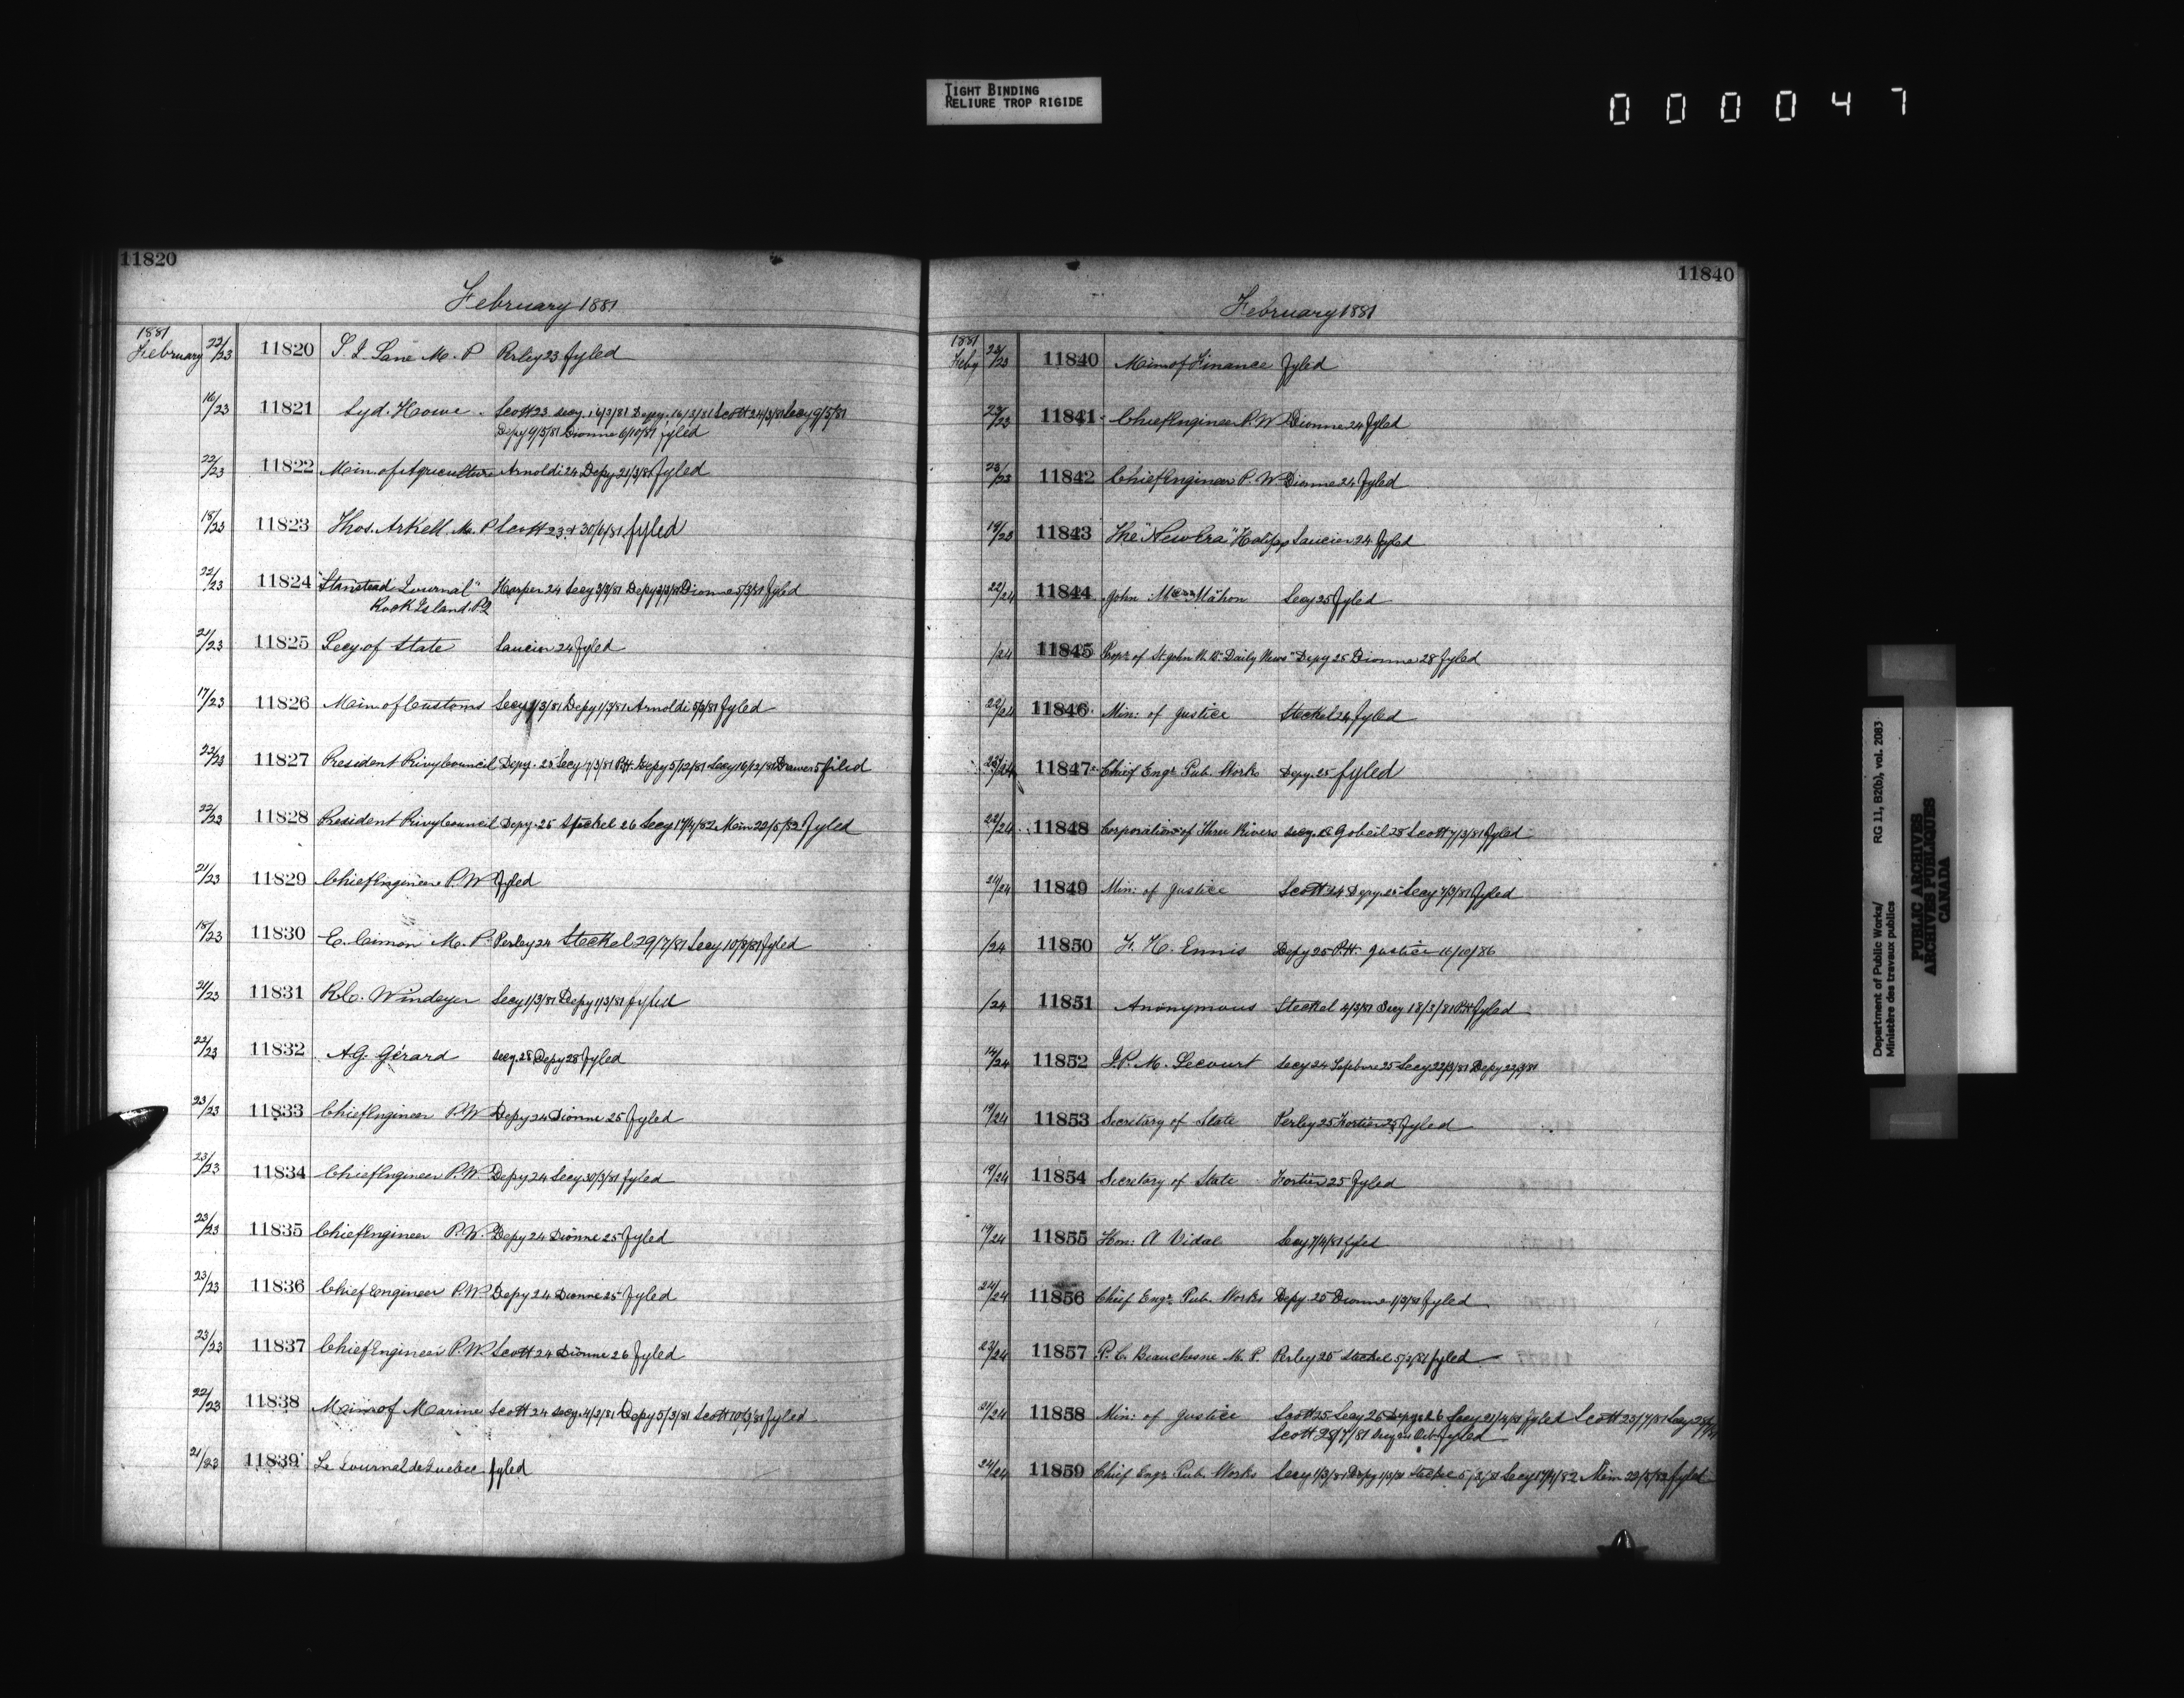 TIGHT BINDING
RELIURE TROP RIGIDE
000047
11820
February 1881
1881
February 22/23 11820 M. P Perley 23 fyled
16/23 11821 Syd. Howe. Scott 23 Secy. 16/3/81 Depy. 16/3/81 Scott 24/3/81 Secy 9/5/81
Depy 9/5/81 Dionne 6/10/81 fyled
22/23 11822 Min. of Agriculture Arnoldi 24 Depy 21/3/81 fyled
18/23 11823 Thos. Arkell. M. P Scott 23 & 30/6/81 fyled
22/23 11824 "Stanstead Journal" Harper 24 Secy 3/3/81 Depy 3/3/81 Dionne 5/3/81 fyled
Rock Island. P.Q
21/23 11825 Secy. of State Saucier 24 fyled
17/23 11826 Min. of Customs Secy 1/3/81 Depy 1/3/81 Arnoldi 5/3/81 fyled
22/23 11827 President Privy Council Depy. 25 Secy 7/3/81 P.H. Depy 5/12/81 Secy 16/12/81 Drawer 5 filed
22/23 11828 President Privy Council Depy. 25 Steckel 26 Secy 17/4/82 Min 22/5/82 fyled
21/23 11829 Chief Engineer P. W fyled
18/23 11830 E. Cimon M. P. Perley 24 Steckel 29/7/81 Secy 10/8/81 fyled
21/23 11831 R.C. Windeyer Secy 1/3/81 Depy 1/3/81 fyled
22/23 11832 A.G. Gérard Secy. 28 Depy 28 fyled
23/23 11833 Chief Engineer P.W Depy 24 Dionne 25 fyled
23/23 11834 Chief Engineer P.W. Depy 24 Secy 30/3/81 fyled
23/23 11835 Chief Engineer P.W. Depy 24 Dionne 25 fyled
23/23 11836 Chief Engineer P.W. Depy 24 Dionne 25 fyled
23/23 11837 Chief Engineer P.W. Scott 24 Dionne 26 fyled
22/23 11838 Min. of Marine Scott 24 Secy. 4/3/81 Depy 5/3/81 Scott 10/3/81 fyled
21/23 11839 Le Journal de Quebec fyled
11840
February 1881
1881
Feby 23/23 11840 Min. of Finance fyled
23/23 11841 Chief Engineer P. W Dionne 24 fyled
23/23 11842 Chief Engineer P. W. Dionne 24 fyled
19/23 11843 The "New Era" Saucier 24 fyled
22/24 11844 John Mahon Secy 25 fyled
/24 11845 Propr. of St. John N. B. "Daily News" Depy 25 Dionne 28 fyled
22/24 11846 Min: of Justice Steckel 24 fyled
/24 11847 Chief Engr. Pub. Works Depy. 25 fyled
22/24 11848 Corporation of Three Rivers Secy. Gobeil 28 Scott 7/3/81 fyled
21/24 11849 Min: of Justice Scott 24 Depy. 25 Secy 7/3/81 fyled
/24 11850 F. H. Ennis Depy 25 P.H. Justice 16/10/86
/24 11851 Anonymous Steckel 4/3/81 Secy 18/3/81 P.H. fyled
14/24 11852 J.P. M. Lecourt Secy 24 Lefebvre 25 Secy 22/3/81 Depy 22/3/81
19/24 11853 Secretary of State Perley 25 Fortier 25 fyled
19/24 11854 Secretary of State Fortier 25 fyled
19/24 11855 Hon: A Vidal Secy 7/4/81 fyled
24/24 11856 Chief Engr. Pub. Works Depy. 25 Dionne 1/3/81 fyled
23/24 11857 P. C. Beauchesne M. P. Perley 25 Steckel 5/3/81 fyled
21/24 11858 Min: of Justice Scott 25 Secy 26 Depy 26 Secy 21/4/81 fyled Scott 23/7/81 Secy
Scott 28/7/81 fyled
24/24 11859 Chief Engr. Pub. Works Secy 1/3/81 Depy 1/3/81 Steckel 5/3/81 Secy 17/4/82 Min 22/5/82 fyled
Department of Public Works/ RG 11, B2(b), vol. 2083
Ministère des travaux publics
PUBLIC ARCHIVES
ARCHIVES PUBLIQUES
CANADA